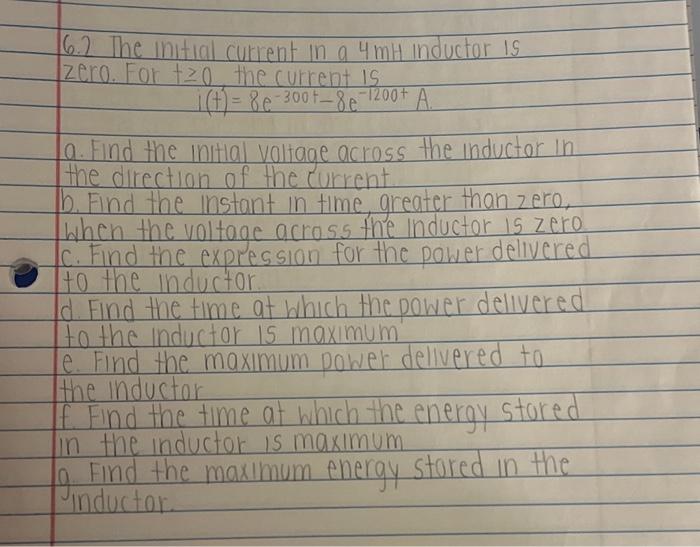 6.2 The initial current in a 4mH inductor is
zero. For t≥0, the current is
i(t)= 8e^-300t - 8e^-1200t A.
a. Find the initial voltage across the inductor in
the direction of the current.
b. Find the instant in time, greater than zero,
when the voltage across the inductor is zero
c. Find the expression for the power delivered
to the inductor.
d. Find the time at which the power delivered
to the inductor is maximum
e. Find the maximum power delivered to
the inductor
f. Find the time at which the energy stored
in the inductor is maximum
g. Find the maximum energy stored in the
inductor.